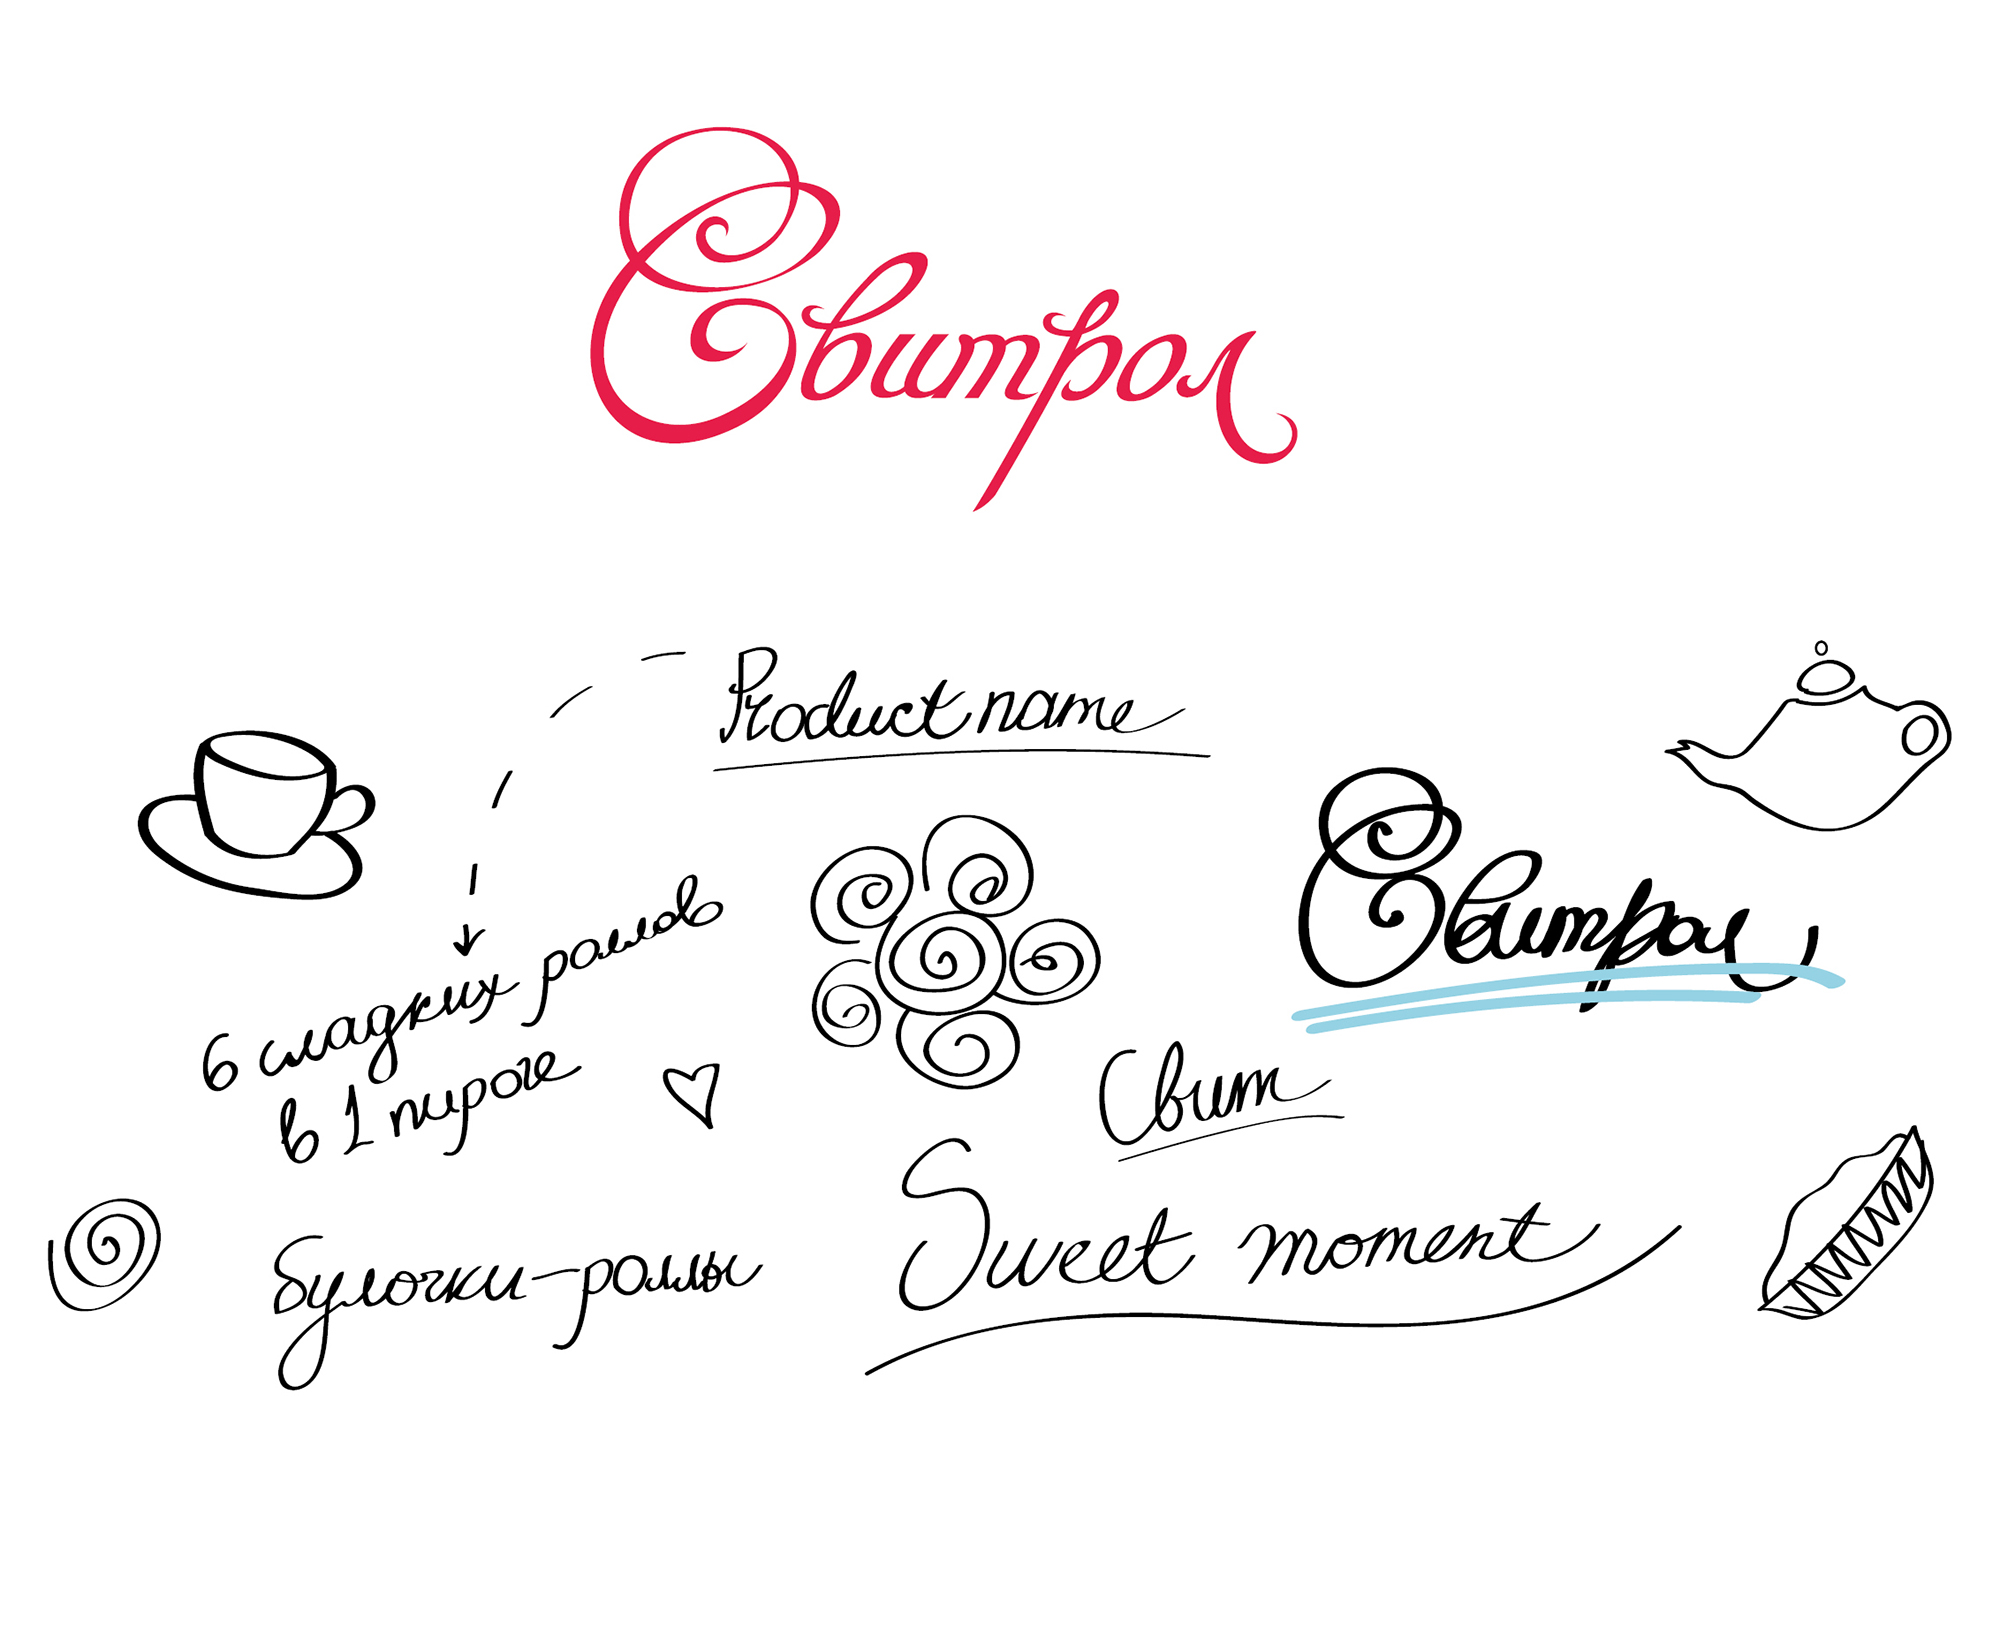 Свитрол
Product name
Свитрол
6 сладких роллов
в 1 пироге
Свит
Sweet moment
булочки-роллы